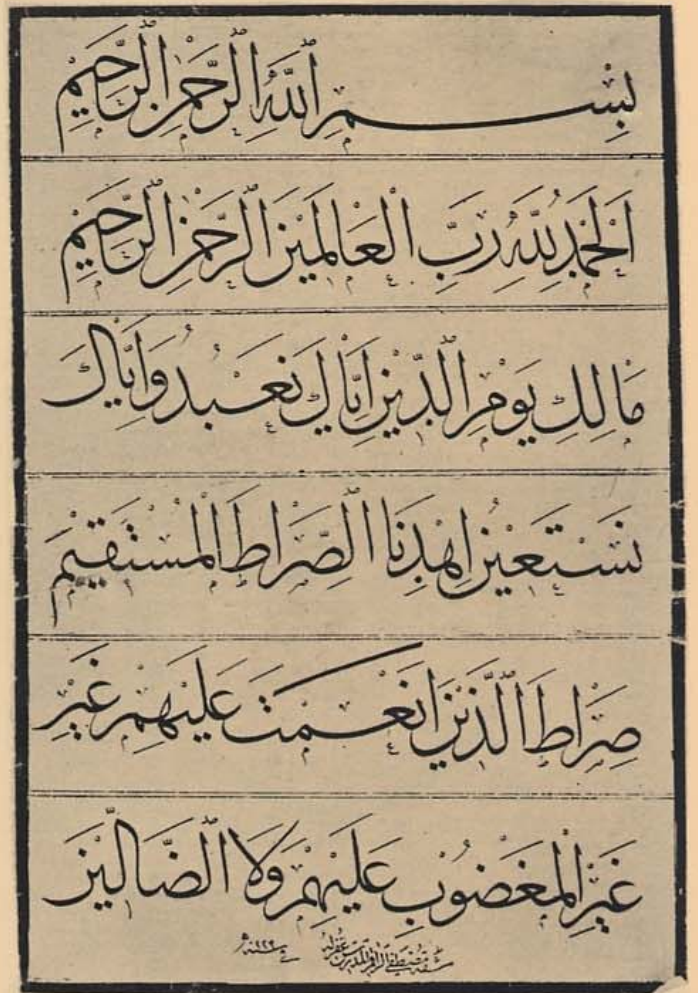 بِسْمِ اللّٰهِ الرَّحْمٰنِ الرَّحِيْمِ
اَلْحَمْدُ لِلّٰهِ رَبِّ الْعَالَمِيْنَ الرَّحْمٰنِ الرَّحِيْمِ
مَالِكِ يَوْمِ الدِّيْنِ اِيَّاكَ نَعْبُدُ وَاِيَّاكَ
نَسْتَعِيْنُ اِهْدِنَا الصِّرَاطَ الْمُسْتَقِيْمَ
صِرَاطَ الَّذِيْنَ اَنْعَمْتَ عَلَيْهِمْ غَيْرِ
غَيْرِ الْمَغْضُوْبِ عَلَيْهِمْ وَلَا الضَّالِّيْنَ
مشقه مصطفى الراقم المدرس غفرله